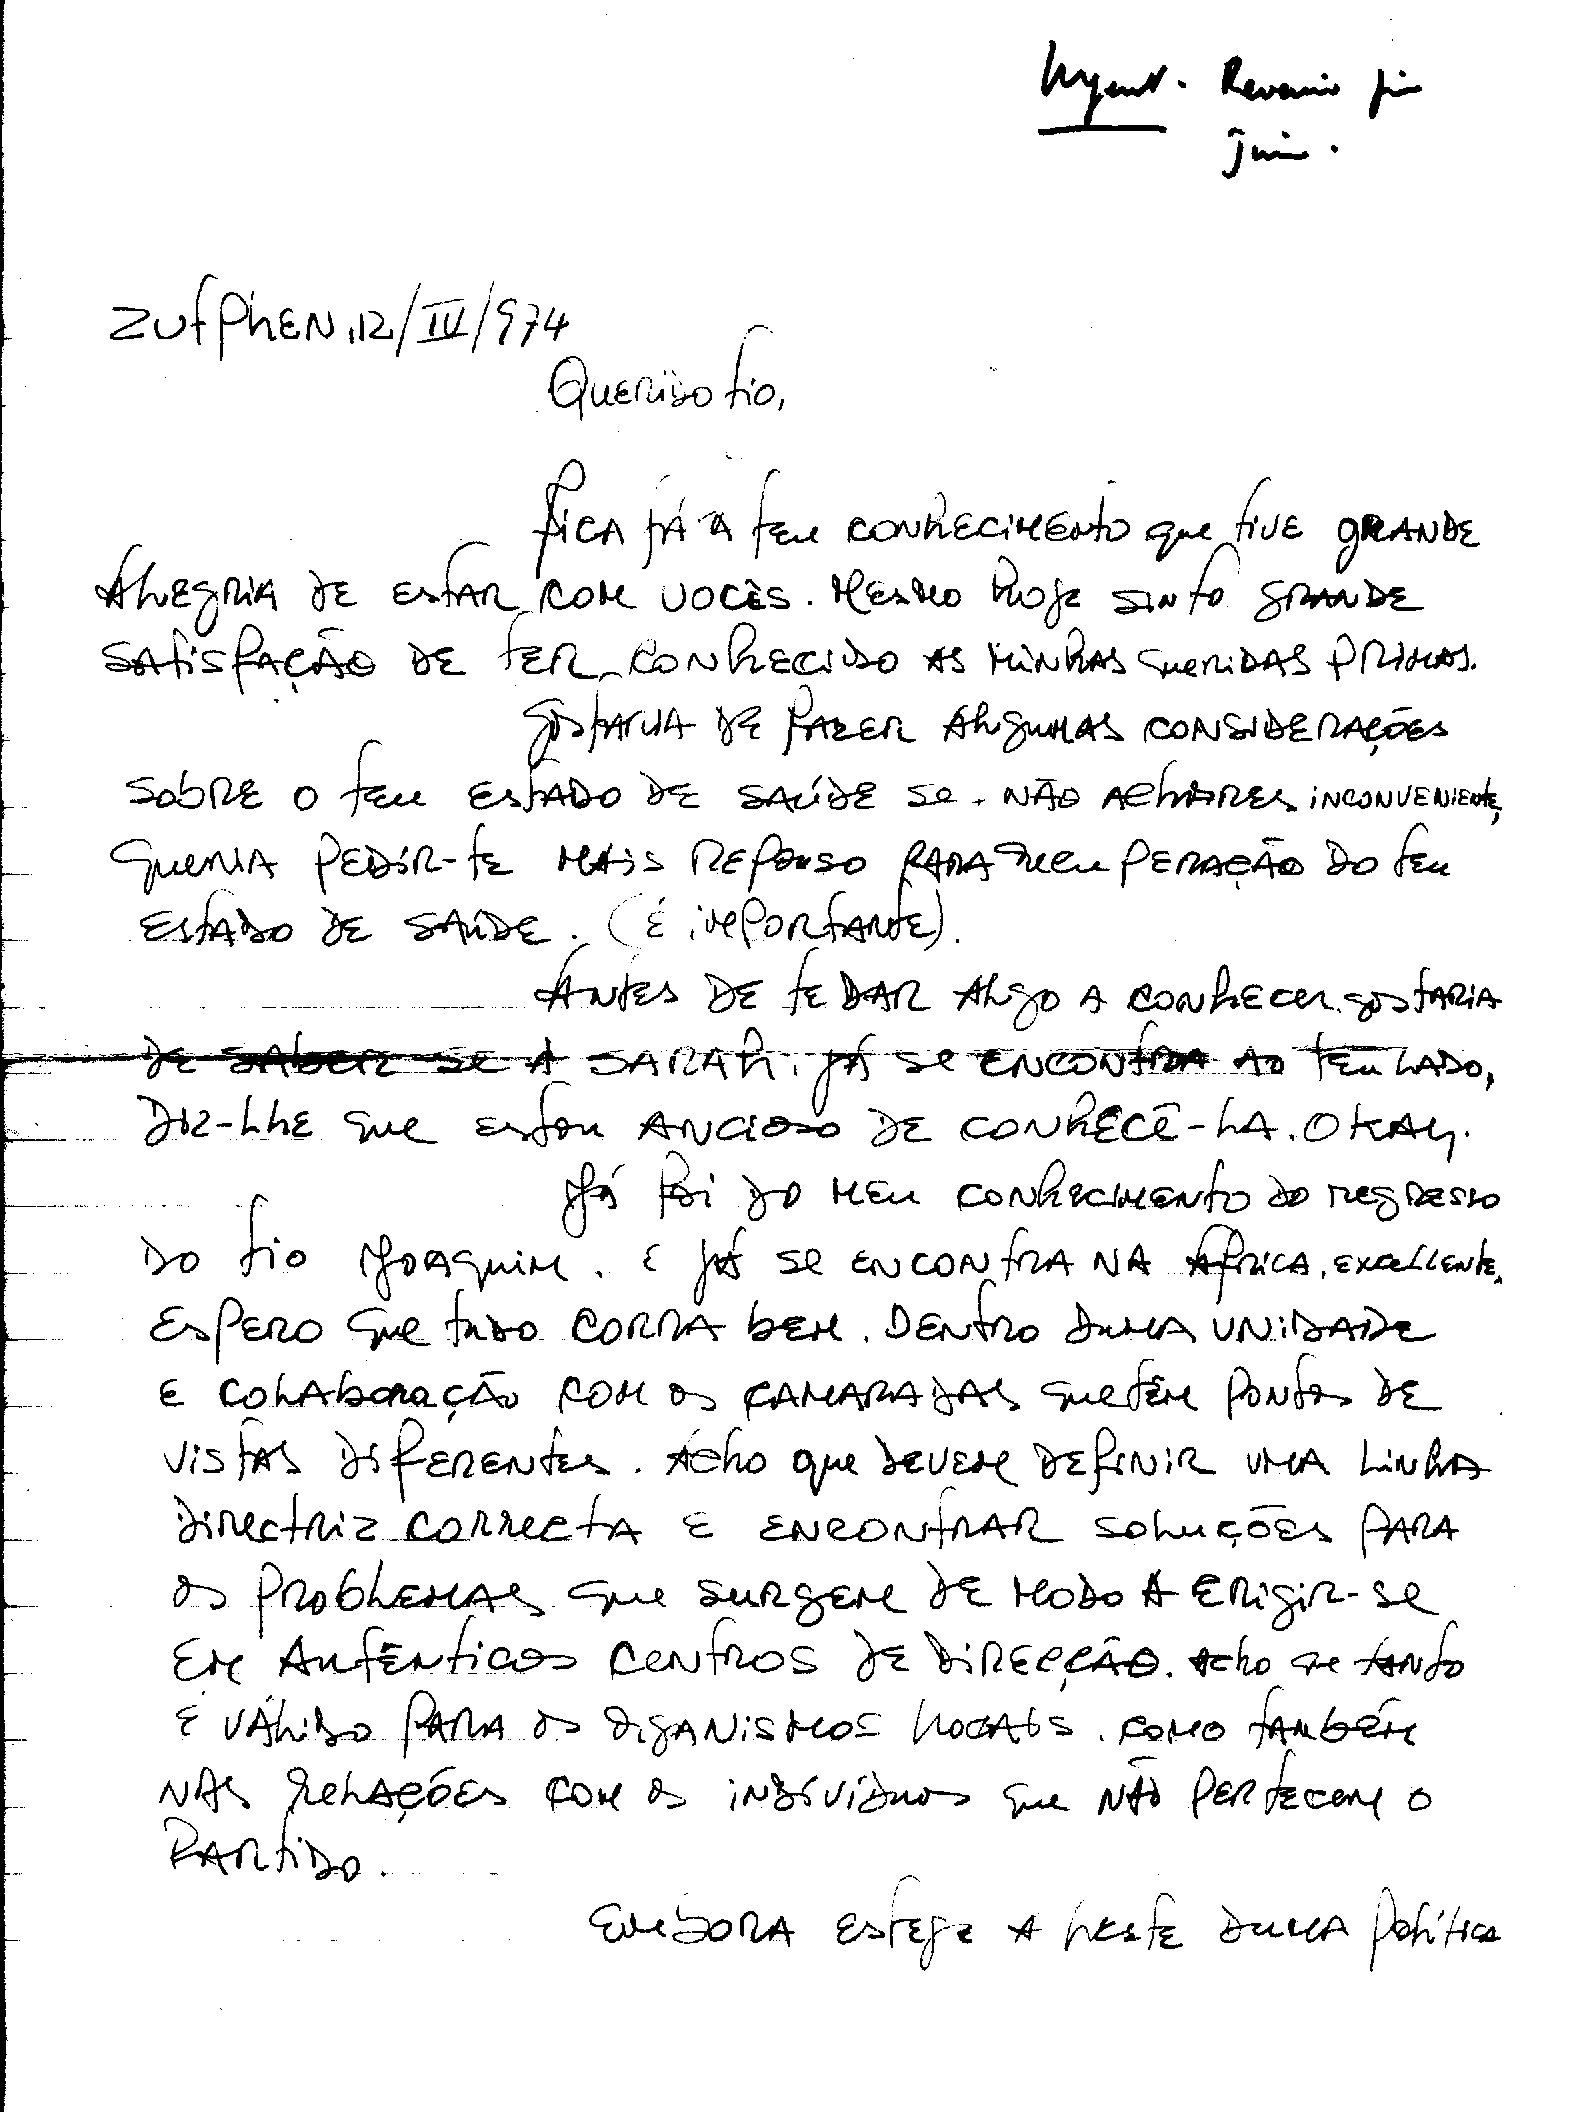 Urgent. Revenir fin
Juin.
Zutphen, 12/IV/974
Querido tio,
Fica já a teu conhecimento que tive grande
alegria de estar com vocês. Mesmo hoje sinto grande
satisfação de ter conhecido as minhas queridas primas.
Gostaria de fazer algumas considerações
sobre o teu estado de saúde se não achares inconveniente,
queria pedir-te mais repouso para recuperação do teu
estado de saúde. (é importante).
Antes de te dar algo a conhecer gostaria
de saber se a Sarah. já se encontra ao teu lado,
diz-lhe que estou ancioso de conhecê-la. Okay.
Já foi do meu conhecimento do regresso
do tio Joaquim. e já se encontra na África, excellente,
espero que tudo corra bem. Dentro duma unidade
e colaboração com os camaradas que têm pontos de
vistas diferentes. Acho que devem definir uma linha
directriz correcta e encontrar soluções para
os problemas que surgem de modo a erigir-se
em autênticos centros de direcção. Acho que tanto
é válido para os organismos locais. como também
nas relações com os indivíduos que não pertecem o
Partido.
Embora esteje a leste duma política